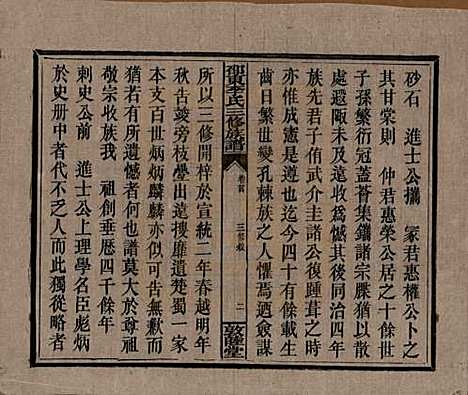 砂石　進士公攜　家君惠權公卜之
其甘棠則　仲君惠榮公居之十餘世
子孫繁衍冠蓋薈集鑲諸宗牒猶以散
處遐陬未及遠收爲憾其後同治四年
族先君子侑武圭介諸公復踵葺之時
亦惟以成憲是監迄今四十有餘載生
齒日繁世變孔棘族之人懼焉迺僉謀
邵東李氏三修族譜
卷首
三修敘
二
敦睦堂
所以三修開梓於宣統二年春越明年
秋告竣旁枝疊出遠搜靡遺楚蜀一家
本支百世炳炳麟麟亦云有美無歉而
猶若有所遺憾者何也譜莫大於尊祖
敬宗收族我　祖創垂歷四千餘年
刺史公前　進士公上理學名臣彪炳
於史册中者代不乏人而此獨從略者